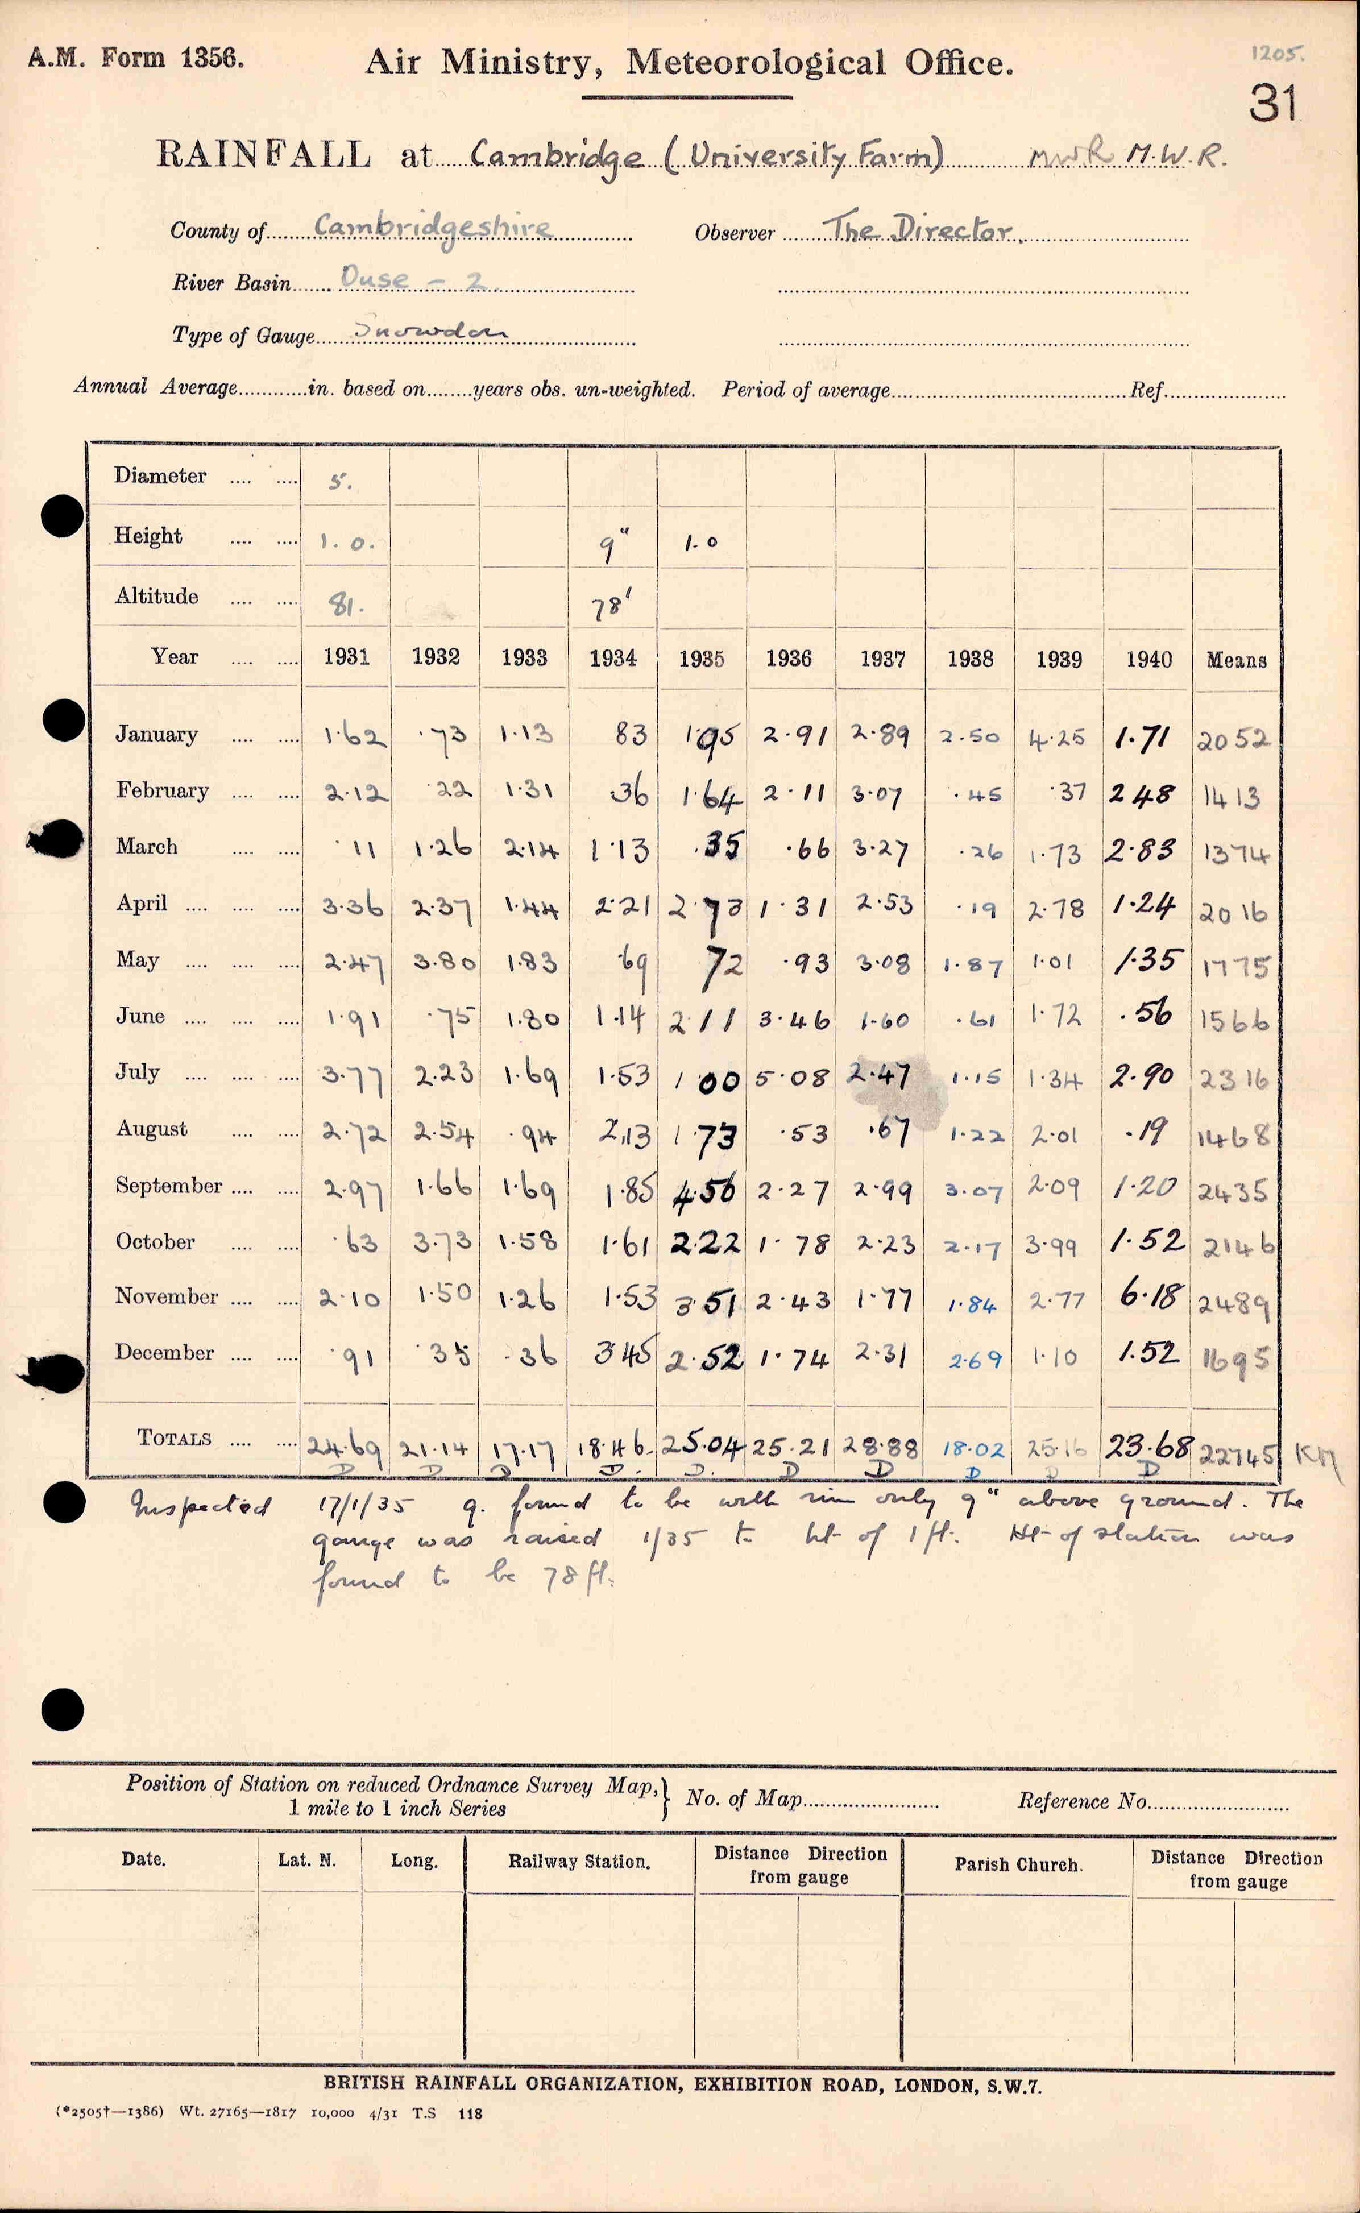 A.M. Form 1356.
Air Ministry, Meteorological Office.
1205.
31
RAINFALL at Cambridge (University Farm) MWR M.W.R.
County of Cambridgeshire Observer The Director.
River Basin Ouse - 2.
Type of Gauge Snowdon
Annual Average............in. based on........years obs. un-weighted. Period of average.................... Ref....................
Diameter .... .... 5.
Height .... .... 1. 0. 9" 1.0
Altitude .... .... 81. 78'
Year .... .... 1931 1932 1933 1934 1935 1936 1937 1938 1939 1940 Means
January .... .... 1.62 .73 1.13 83 1.95 2.91 2.89 2.50 4.25 1.71 2052
February .... .... 2.12 .22 1.31 .36 1.64 2.11 3.07 .45 .37 2.48 1413
March .... .... .11 1.26 2.14 1.13 .35 .66 3.27 .26 1.73 2.83 1374
April .... .... .... 3.36 2.37 1.44 2.21 2.73 1.31 2.53 .19 2.78 1.24 2016
May .... .... .... 2.47 3.80 1.83 .69 72 .93 3.08 1.87 1.01 1.35 1775
June .... .... .... 1.91 .75 1.80 1.14 2.11 3.46 1.60 .61 1.72 .56 1566
July .... .... .... 3.77 2.23 1.69 1.53 1.00 5.08 2.47 1.15 1.34 2.90 2316
August .... .... 2.72 2.54 .94 2.13 1.73 .53 .67 1.22 2.01 .19 1468
September .... .... 2.97 1.66 1.69 1.85 4.56 2.27 2.99 3.07 2.09 1.20 2435
October .... .... .63 3.73 1.58 1.61 2.22 1.78 2.23 2.17 3.99 1.52 2146
November .... .... 2.10 1.50 1.26 1.53 3.51 2.43 1.77 1.84 2.77 6.18 2489
December .... .... .91 .35 .36 3.45 2.52 1.74 2.31 2.69 1.10 1.52 1695
TOTALS .... .... 24.69 21.14 17.17 18.46 25.04 25.21 28.88 18.02 25.16 23.68 22745 KM
D D D D. D. D D D D D
Inspected 17/1/35 g. found to be with rim only 9" above ground. The
gauge was raised 1/35 to ht of 1 ft. Ht of station was
found to be 78 ft.
Position of Station on reduced Ordnance Survey Map, } No. of Map.................... Reference No....................
1 mile to 1 inch Series
Date. Lat. N. Long. Railway Station. Distance Direction from gauge Parish Church. Distance Direction from gauge
BRITISH RAINFALL ORGANIZATION, EXHIBITION ROAD, LONDON, S.W.7.
(*2505†—1386) Wt. 27165—1817 10,000 4/31 T.S 118